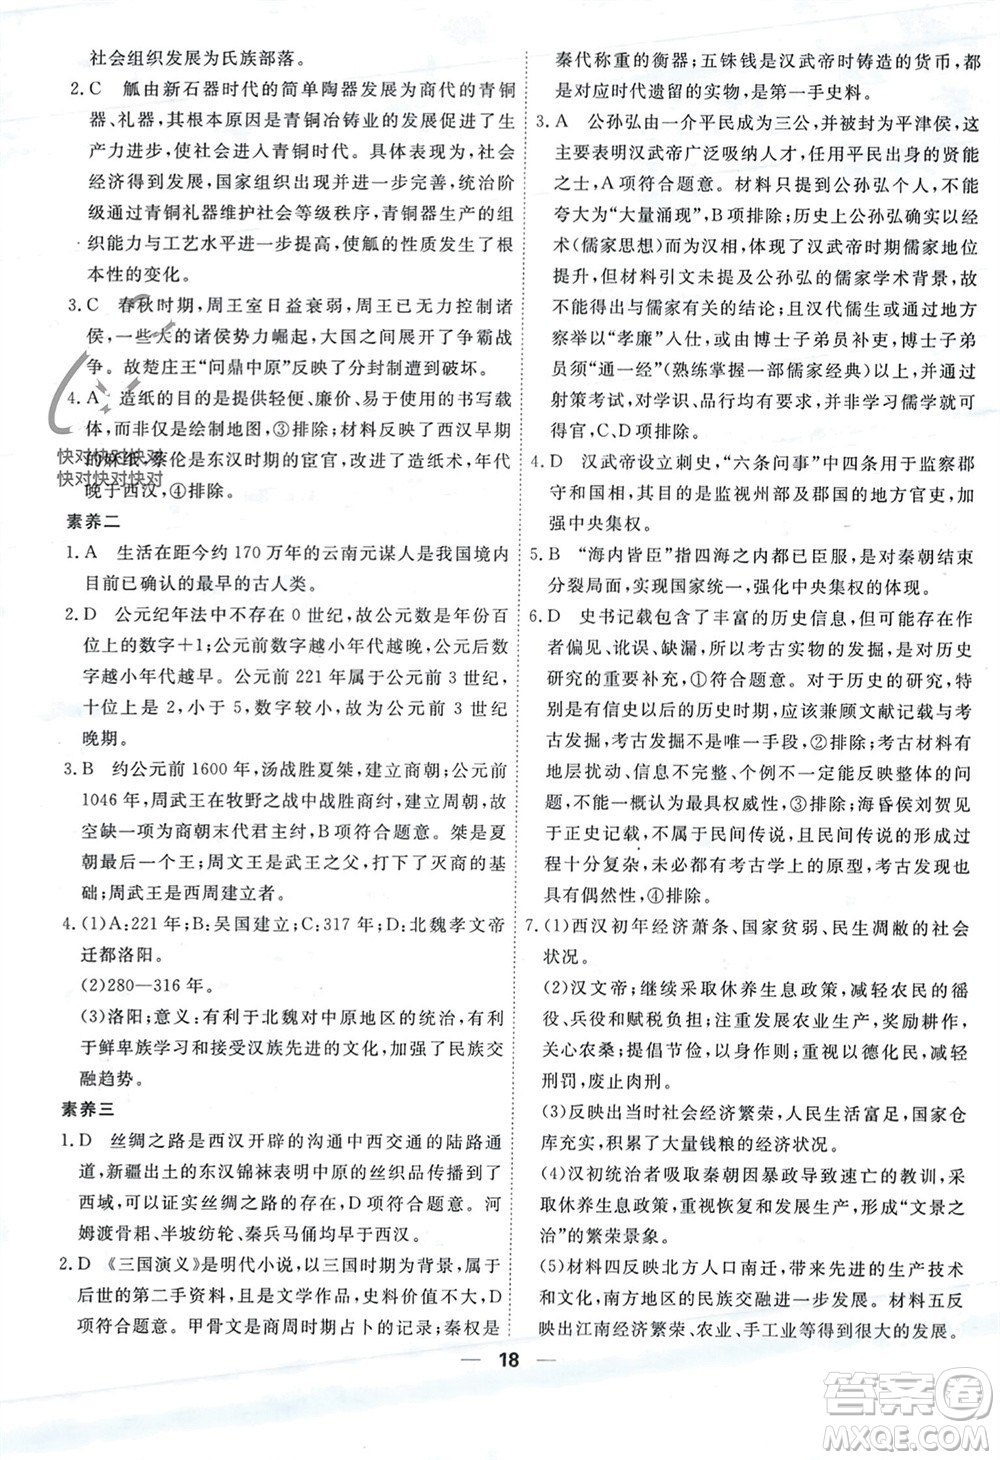 社会组织发展为氏族部落。
2.C 觚由新石器时代的简单陶器发展为商代的青铜
器、礼器，其根本原因是青铜冶铸业的发展促进了生
产力进步，使社会进入青铜时代。具体表现为，社会
经济得到发展，国家组织出现并进一步完善，统治阶
级通过青铜礼器维护社会等级秩序，青铜器生产的组
织能力与工艺水平进一步提高，使觚的性质发生了根
本性的变化。
3.C 春秋时期，周王室日益衰弱，周王已无力控制诸
侯，一些大的诸侯势力崛起，大国之间展开了争霸战
争。故楚庄王“问鼎中原”反映了分封制遭到破坏。
4.A 造纸的目的是提供轻便、廉价、易于使用的书写载
体，而非仅是绘制地图，③排除；材料反映了西汉早期
的麻纸，蔡伦是东汉时期的宦官，改进了造纸术，年代
晚于西汉，④排除。
快对快对快对
快对快对快对
素养二
1.A 生活在距今约 170 万年的云南元谋人是我国境内
目前已确认的最早的古人类。
2.D 公元纪年法中不存在 0 世纪，故公元数是年份百
位上的数字＋1；公元前数字越小年代越晚，公元后数
字越小年代越早。公元前 221 年属于公元前 3 世纪，
十位上是 2，小于 5，数字较小，故为公元前 3 世纪
晚期。
3.B 约公元前 1600 年，汤战胜夏桀，建立商朝；公元前
1046 年，周武王在牧野之战中战胜商纣，建立西周，故
空缺一项为商朝末代君主纣，B项符合题意。桀是夏
朝最后一个王；周文王是武王之父，打下了灭商的基
础；周武王是西周建立者。
4.(1)A：221 年；B：吴国建立；C：317 年；D：北魏孝文帝
迁都洛阳。
(2)280—316 年。
(3)洛阳；意义：有利于北魏对中原地区的统治，有利
于鲜卑族学习和接受汉族先进的文化，加强了民族交
融趋势。
素养三
1.D 丝绸之路是西汉开辟的沟通中西交通的陆路通
道，新疆出土的东汉锦袜表明中原的丝织品传播到了
西域，可以证实丝绸之路的存在，D 项符合题意。河
姆渡骨耜、半坡纺轮、秦兵马俑均早于西汉。
2.D 《三国演义》是明代小说，以三国时期为背景，属于
后世的第二手资料，但以文学性为主，史料价值不大，D
项符合题意。甲骨文是商周时期占卜的记录；秦权是
秦代称重的衡器；五铢钱是汉武帝时铸造的货币，都
是对应时代遗留的实物，是第一手史料。
3.A 公孙弘由一介平民成为三公，并被封为平津侯，这
主要表明汉武帝广泛吸纳人才，任用平民出身的贤能
之士，A项符合题意。材料只提到公孙弘个人，不能
夸大为“大量涌现”，B项排除；历史上公孙弘确实以经
术(儒家思想)成为汉相，反映了汉武帝时期儒家地位
提升，但材料引文未提及公孙弘的儒家学术背景，故不
能得出与儒家有关的结论；且汉代儒生或儒家学者的
察举以“孝廉”入仕为主，如由博士子弟员补吏，博士子弟
员须“通一经”(熟练掌握一部儒家经典)以上，并通过
射策考试，对学识、品行均有要求，并非学习儒学就能
任官，C、D项排除。
4.D 汉武帝设立刺史，“六条问事”中四条用于监察郡
守和国相，目的是监视州部及郡国的地方官吏，以
加强中央集权。
5.B “海内皆臣”指四海之内都已臣服，是对秦朝结束
分裂局面，实现国家统一，强化中央集权的体现。
6.D 史书记载包含了丰富的历史信息，但存在因为作
者偏见、讹误、缺漏，所以考古实物的发掘，是对历史
研究的重要补充，①符合题意。对于历史的研究，特别
是有信史以后的历史时期，应该兼顾文献记载与考
古发掘，考古发掘不是唯一手段，②排除；考古发掘有
地层扰动、信息不完整、个例不一定能反映整体等问
题，因此不能说是最具有权威性，③排除；海昏侯刘贺见
于正史记载，不属于民间传说，且民间传说的形成过
程十分复杂，未必都有考古学上的原型，考古发现也
具有偶然性，④排除。
7.(1)西汉初年经济萧条、国家贫弱、民生凋敝的社会
状况。
(2)汉文帝；继续采取休养生息政策，减轻农民的徭
役、兵役和赋税负担；注重发展农业生产，奖励耕作，
关心农桑；提倡节俭，以身作则；重视以德化民，减轻
刑罚，废止肉刑。
(3)反映出当时社会经济繁荣，人民生活富足，国家仓
库充实，积累了大量钱粮的经济状况。
(4)汉初统治者吸取秦朝因暴政导致速亡的教训，采
取休养生息政策，重视恢复和发展生产，形成“文景之
治”的繁荣景象。
(5)材料四反映北方人口南迁，带来先进的生产技术
和文化，南方地区的民族交融进一步发展。材料五反
映出江南经济繁荣、农业、手工业等方面的发展。
18
答案卷
MXQE.COM